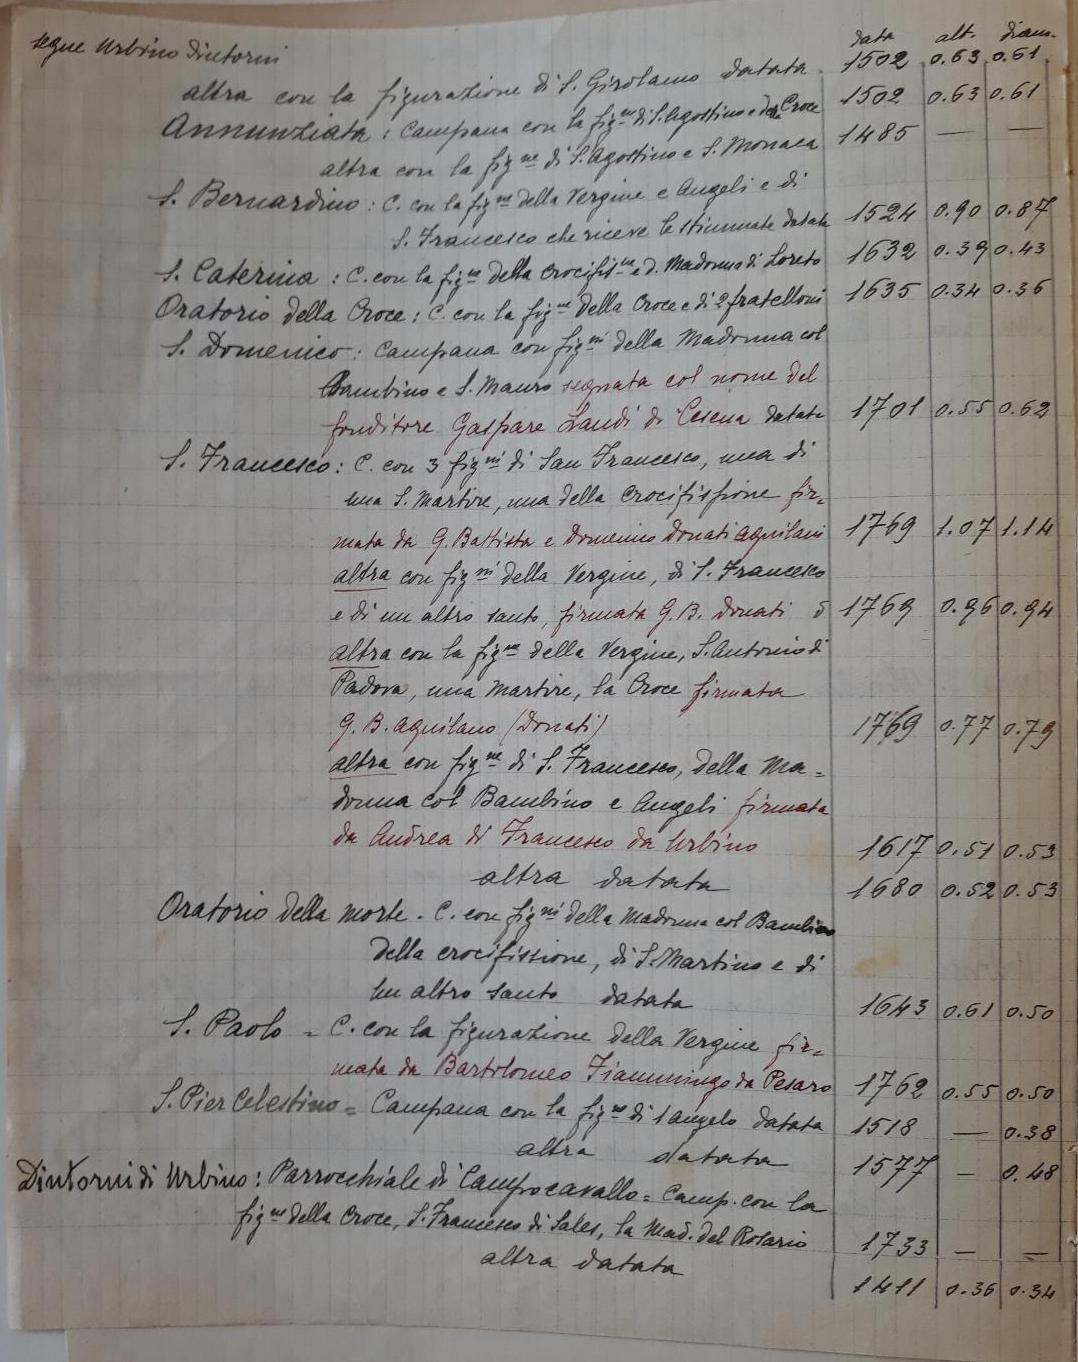 segue Urbino Dintorni data alt. diam.
altra con la figurazione di S. Girolamo datata 1502 0.63 0.61
Annunziata : Campana con la figne di S. Agostino e della Croce 1502 0.63 0.61
altra con la figne di S. Agostino e S. Monaca 1485 — —
S. Bernardino : C. con la figne della Vergine e Angeli e di
S. Francesco che riceve le stimmate datata 1524 0.90 0.87
S. Caterina : C. con la figne della Crocifisne e d. Madonna di Loreto 1632 0.39 0.43
Oratorio della Croce : C. con la figne della Croce e di 2 fratelloni 1635 0.34 0.36
S. Domenico : Campana con figni della Madonna col
Bambino e S. Mauro segnata col nome del
fonditore Gaspare Landi di Cesena datata 1701 0.55 0.62
S. Francesco : C. con 3 figni di San Francesco, una di
una S. Martire, una della Crocifissione fir=
mata da G. Battista e Domenico Donati Aquilani 1769 1.07 1.14
altra con figni della Vergine, di S. Francesco
e di un altro santo, firmata G. B. Donati 1769 0.96 0.94
altra con la figne della Vergine, S. Antonio di
Padova, una Martire, la Croce firmata
G. B. Aquilano (Donati) 1769 0.77 0.79
altra con figne di S. Francesco, della Ma=
donna col Bambino e Angeli firmata
da Andrea di Francesco da Urbino 1617 0.51 0.53
altra datata 1680 0.52 0.53
Oratorio della Morte . C. con figni della Madonna col Bambino
della crocifissione, di S. Martino e di
un altro santo datata 1643 0.61 0.50
S. Paolo = C. con la figurazione della Vergine fir=
mata da Bartolomeo Fiammingo da Pesaro 1762 0.55 0.50
S. Pier Celestino = Campana con la figne di 1 angelo datata 1518 — 0.38
altra datata 1577 — 0.48
Dintorni di Urbino : Parrocchiale di Campocavallo = Camp. con la
figne della Croce, S. Francesco di Sales, la Mad. del Rosario 1733 — —
altra datata 1411 0.36 0.34